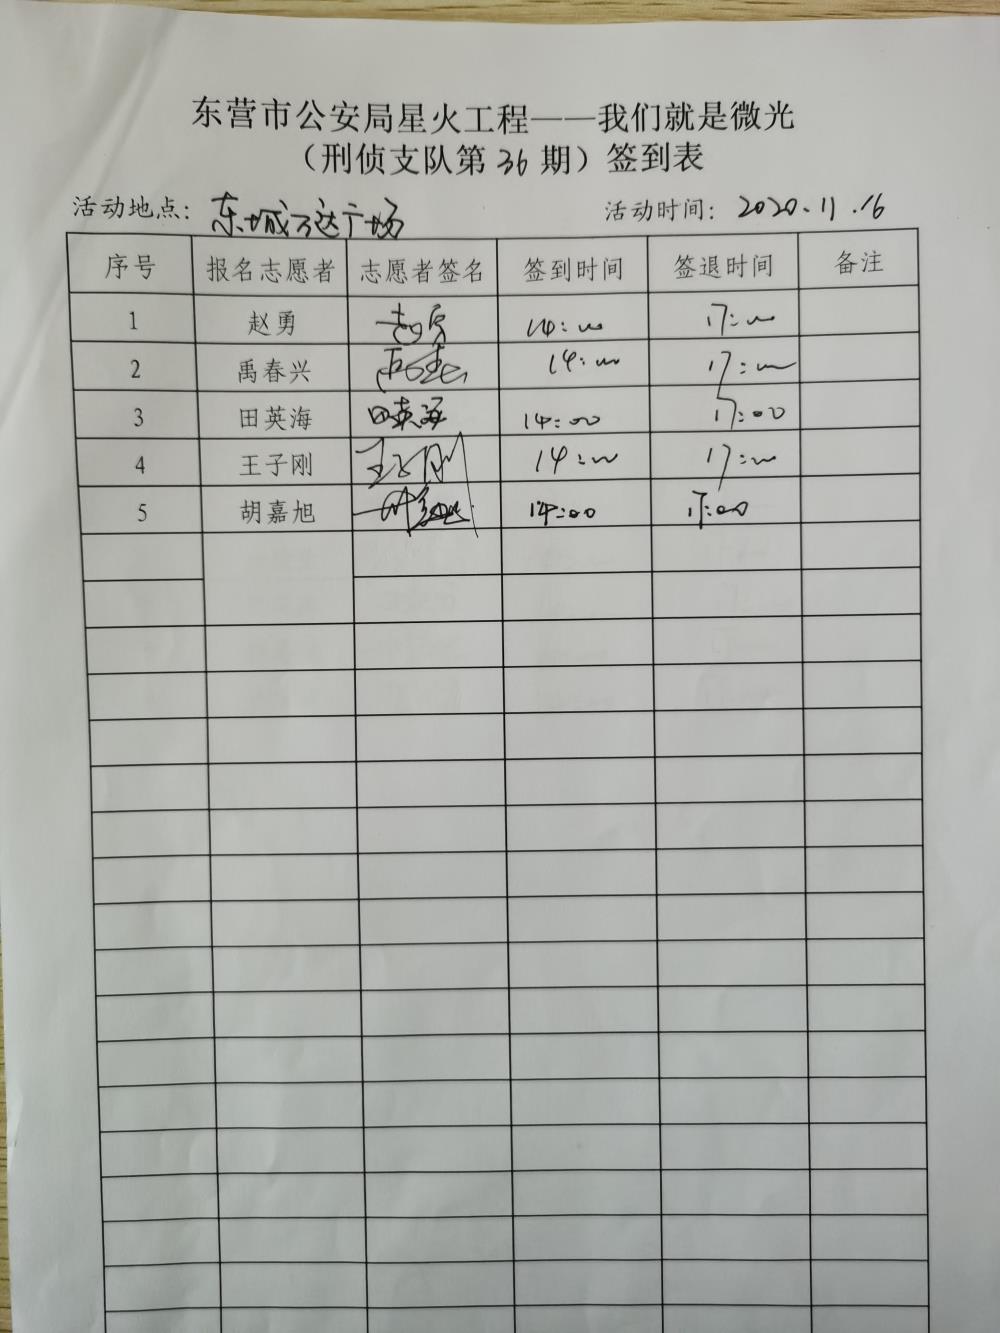 东营市公安局星火工程——我们就是微光
（刑侦支队第 36 期）签到表
活动地点：东城万达广场 活动时间：2020.11.16
序号 报名志愿者 志愿者签名 签到时间 签退时间 备注
1 赵勇 赵勇 14:00 17:00
2 禹春兴 14:00 17:00
3 田英海 田英海 14:00 17:00
4 王子刚 王子刚 14:00 17:00
5 胡嘉旭 14:00 17:00